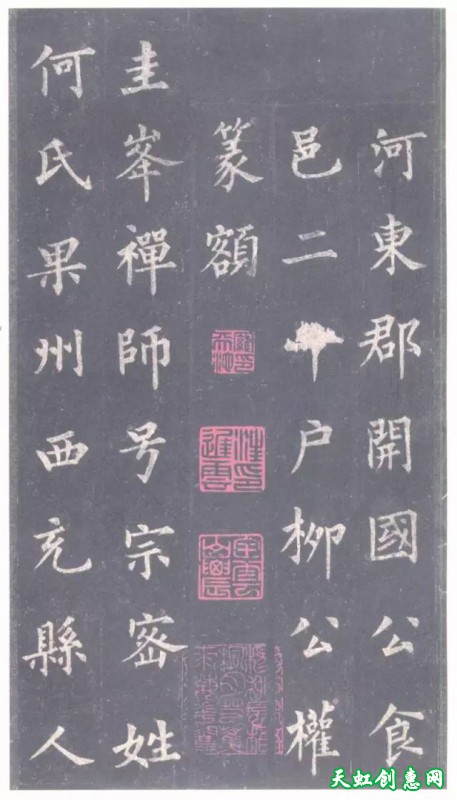 河東郡開國公食
邑二千户柳公權
篆額
圭峯禪師号宗密姓
何氏果州西充縣人
天虹创惠网